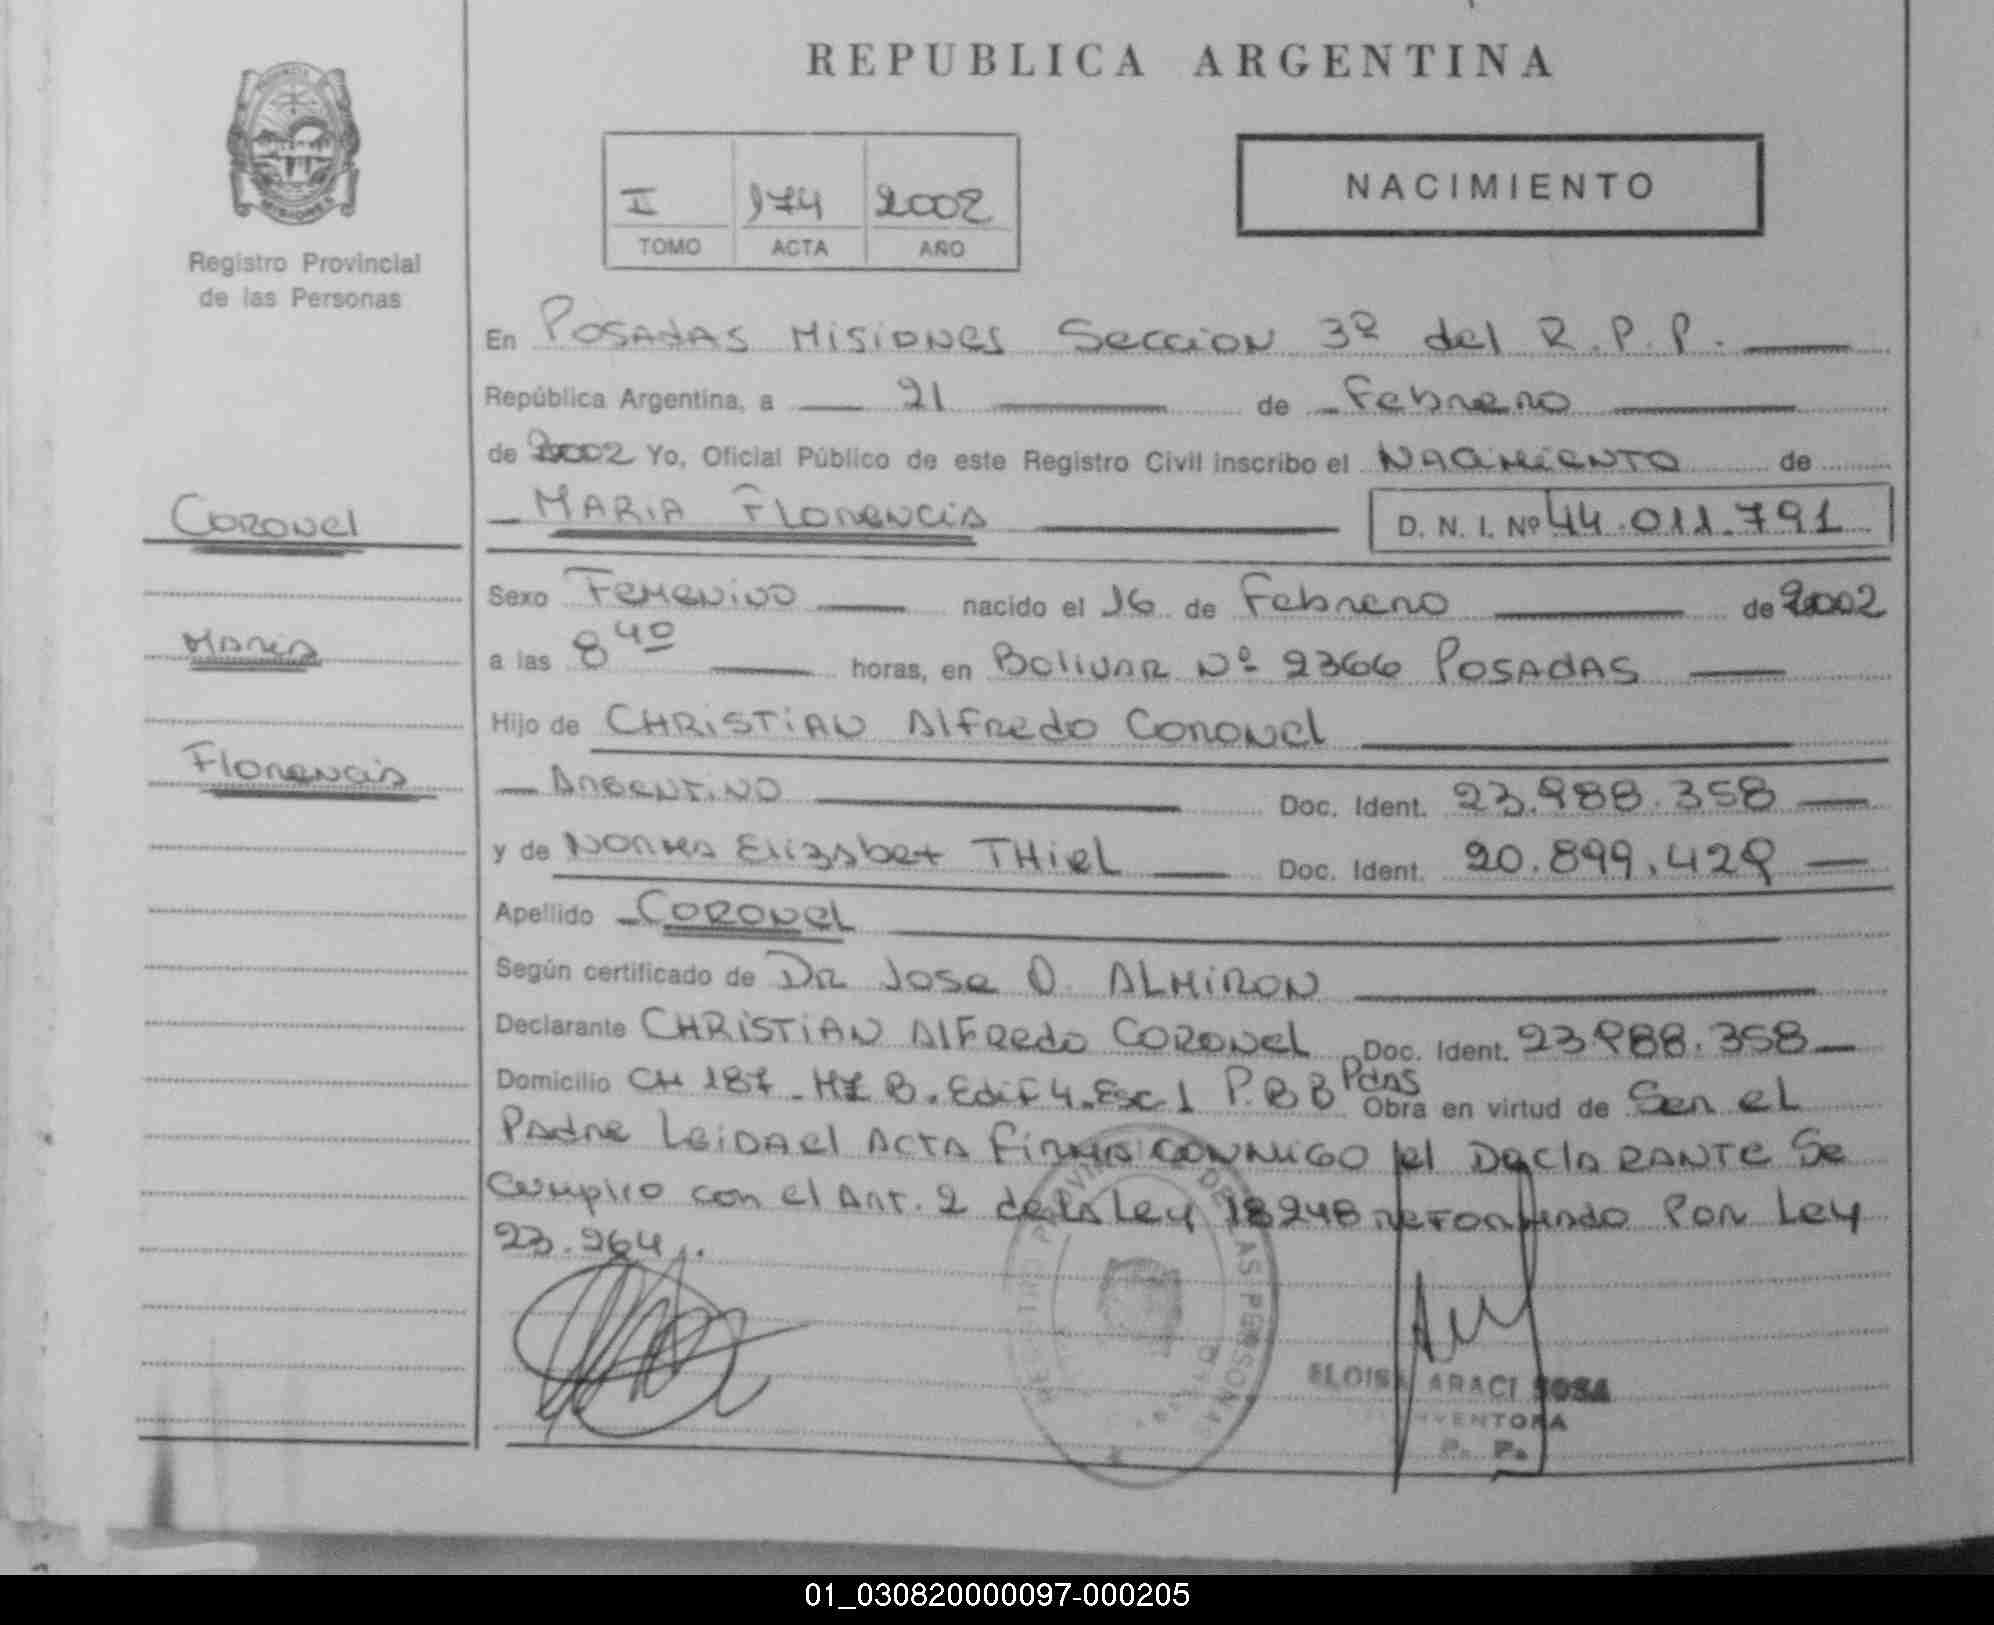 REPUBLICA ARGENTINA
NACIMIENTO
II 174 2002
TOMO ACTA AÑO
MISIONES
Registro Provincial
de las Personas
En POSADAS MISIONES Seccion 3º del R.P.P.
República Argentina, a 21 de Febrero
de 2002 Yo, Oficial Público de este Registro Civil inscribo el NACIMIENTO de
Coronel
MARIA Florencia D. N. I. Nº 44.011.791
Sexo Femenino nacido el 16 de Febrero de 2002
Maria
a las 8 40 horas, en Bolivar Nº 2366 POSADAS
Hijo de CHRISTIAN Alfredo Coronel
Florencia
ARGENTINO Doc. Ident. 23.988.358
y de Norma Elizabet THiel Doc. Ident. 20.899.429
Apellido Coronel
Según certificado de Dr Jose O. ALMIRON
Declarante CHRISTIAN AlFredo CORONel Doc. Ident. 23988.358
Domicilio CH 187 - MZ B. Edif 4. Esc 1 P.B B Pdas Obra en virtud de Ser el
Padre Leida el ACTA firma CONMIGO el DeclaRANTE Se
cumplio con el Art. 2 de la Ley 18248 reformado Por Ley
23.264.
REGISTRO PROVINCIAL DE LAS PERSONAS
ELOISA ARACI SOSA